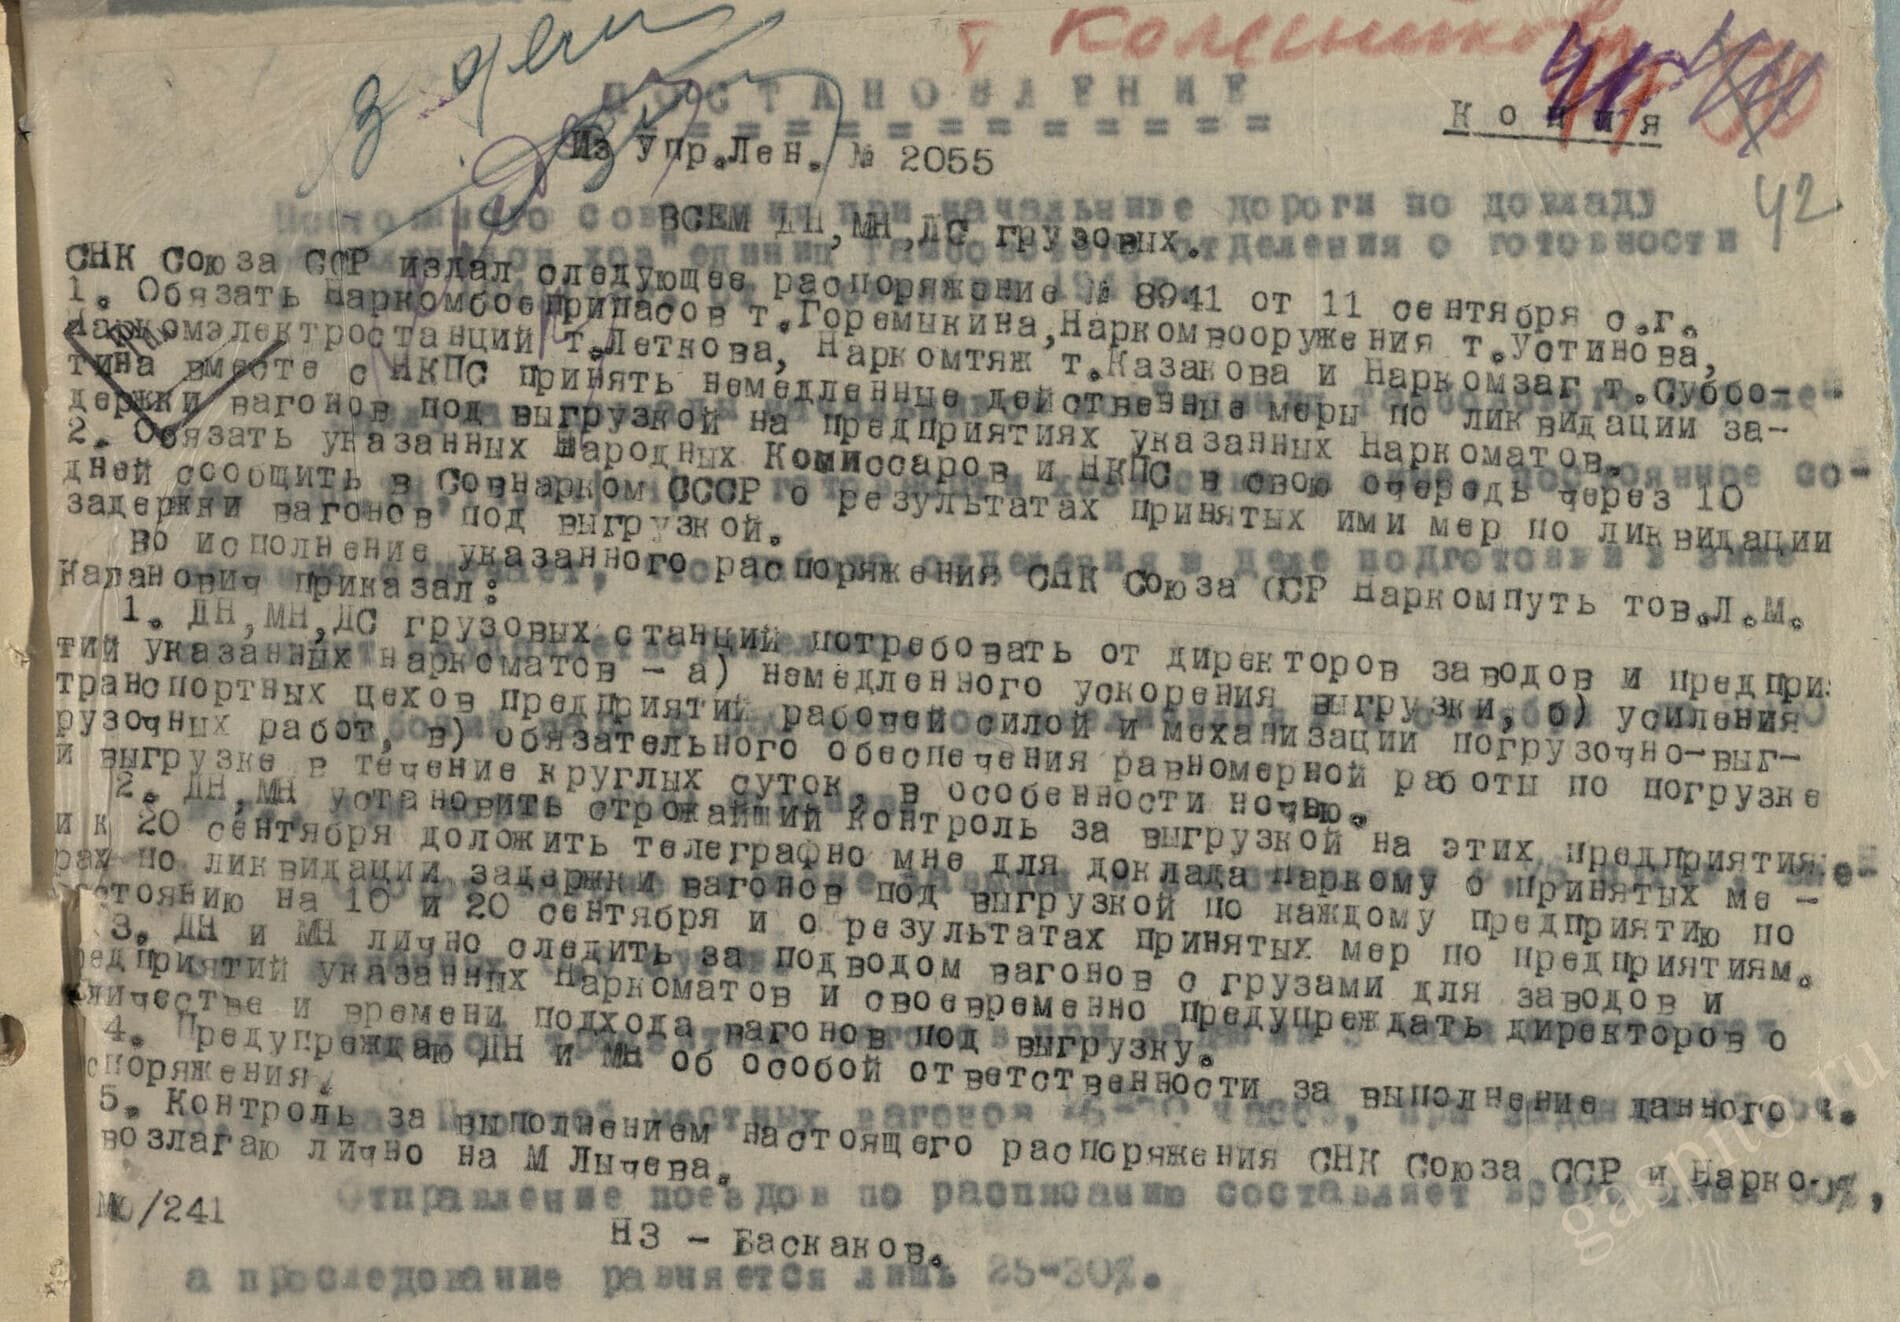 т Колесникову
П О С Т А Н О В Л Е Н И Е
К о п и я
Из Упр.Лен. № 2055
42
ВСЕМ ДН,МН,ДС грузовых.
СНК Союза ССР издал следующее распоряжение № 8941 от 11 сентября с.г.
1. Обязать Наркомбоеприпасов т.Горемыкина,Наркомвооружения т.Устинова,
Наркомэлектростанций т.Леткова, Наркомтяж т.Казакова и Наркомзаг т.Суббо-
тина вместе с НКПС принять немедленные действенные меры по ликвидации за-
держки вагонов под выгрузкой на предприятиях указанных Наркоматов.
2. Обязать указанных Народных Комиссаров и НКПС в свою очередь через 10
дней сообщить в Совнарком СССР о результатах принятых ими мер по ликвидации
задержки вагонов под выгрузкой.
Во исполнение указанного распоряжения СНК Союза ССР Наркомпуть тов.Л.М.
Каганович приказал:
1. ДН,МН,ДС грузовых станций потребовать от директоров заводов и предпри
тий указанных наркоматов - а) немедленного ускорения выгрузки, б) усиления
транспортных цехов предприятий рабочей силой и механизации погрузочно-выг-
рузочных работ, в) обязательного обеспечения равномерной работы по погрузке
и выгрузке в течение круглых суток, в особенности ночью.
2. ДН,МН установить строжайший контроль за выгрузкой на этих предприятия
и к 20 сентября доложить телеграфно мне для доклада Наркому о принятых ме -
рах по ликвидации задержки вагонов под выгрузкой по каждому предприятию по
стоянию на 10 и 20 сентября и о результатах принятых мер по предприятиям.
3. ДН и МН лично следить за подводом вагонов с грузами для заводов и
редприятий указанных Наркоматов и своевременно предупреждать директоров о
личестве и времени подхода вагонов под выгрузку.
4. Предупреждаю ДН и МН об особой ответственности за выполнение данного
споряжения.
5. Контроль за выполнением настоящего распоряжения СНК Союза ССР и Нарко-
возлагаю лично на М Лычева.
Отправление поездов по расписанию составляет
/241
НЗ - Баскаков.
а проследование равняется лишь 25-30%.
gaspito.ru